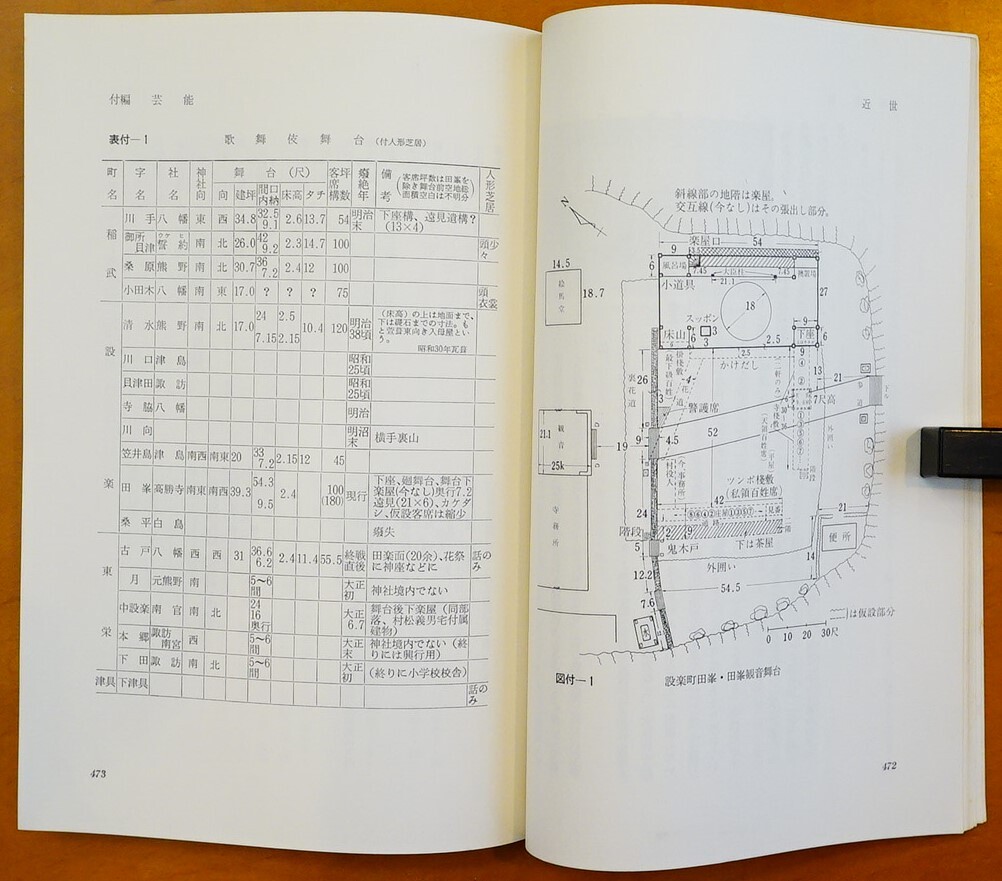 付編 芸能
表付—1 歌舞伎舞台(付人形芝居)
町名 字名 社名 神社向 舞台(尺) 客席構 坪数 廃絶年 備考(客席坪数は田峯を除き舞台前空地能面積空白は不明分) 人形芝居
向 建坪 間口内納 床高 タチ
稲武
川手 八幡 東 西 34.8 32.5 9.1 2.6 13.7 54 明治末 下座構、遠見遺構?(13×4)
御所貝津 誓約 南 北 26.0 42 9.2 2.3 14.7 100 頭少々
桑原 熊野 南 北 30.7 36 7.2 2.4 12 100
小田木 八幡 南 東 17.0 ? ? ? 75 頭衣裳
設楽
清水 熊野 南 北 17.0 24 7.15 2.5 2.15 10.4 120 明治38頃 (床高)の上は地面まで、下は礎石までの寸法。もと萱葺東向き入母屋という。昭和30年瓦葺
川口 津島 昭和25頃
貝津田 諏訪 昭和25頃
寺脇 八幡 明治
川向 明治末 横手裏山
笠井島 津島 南西 南東 20 33 7.2 2.15 12 45
田峯 高勝寺 南東 南西 39.3 54.3 9.5 2.4 100(180) 現行 下座、廻舞台、舞台下楽屋(今なし)奥行7.2遠見(21×6)、カケダシ、仮設客席は縮少
桑平 白鳥 廃失
東栄
古戸 八幡 西 西 31 36.6 6.2 2.4 11.4 55.5 終戦直後 田楽面(20余)、花祭に神座などに 話のみ
月 元熊野 南 5〜6間 大正初 神社境内でない
中設楽 南宮 南 北 24 16 奥行 大正6.7 舞台後下楽屋(同部落、村松義男宅付属建物)
本郷 諏訪南宮 西 5〜6間 大正末 神社境内でない(終りには興行用)
下田 諏訪 南 北 5〜6間 大正初 (終りに小学校校舎)
津具 下津具 話のみ
473
近世
斜線部の地階は楽屋。
交互線(今なし)はその張出し部分。
楽屋口
9 54
6 風呂場 7.45 大臣柱 7.45
21.1
小道具
18
27
スッポン
3
3
床山 6
下座 6
2.5 2.5 9
かけだし
14.5
18.7
13 21
26
裏花道
花道
4
3
警護席
7尺高
歩道
外囲い
観音
21.1
25k
19
9
4.5
52
村役人
(今事務所)
(天領百姓席)
ツンボ桟敷
(私領百姓席)
42
24
寺務所
階段
5
2 9
通路
鬼木戸
下は茶屋
21
14
便所
外囲い
12.2
54.5
7.6
は仮設部分
0 10 20 30尺
図付—1 設楽町田峯・田峯観音舞台
472